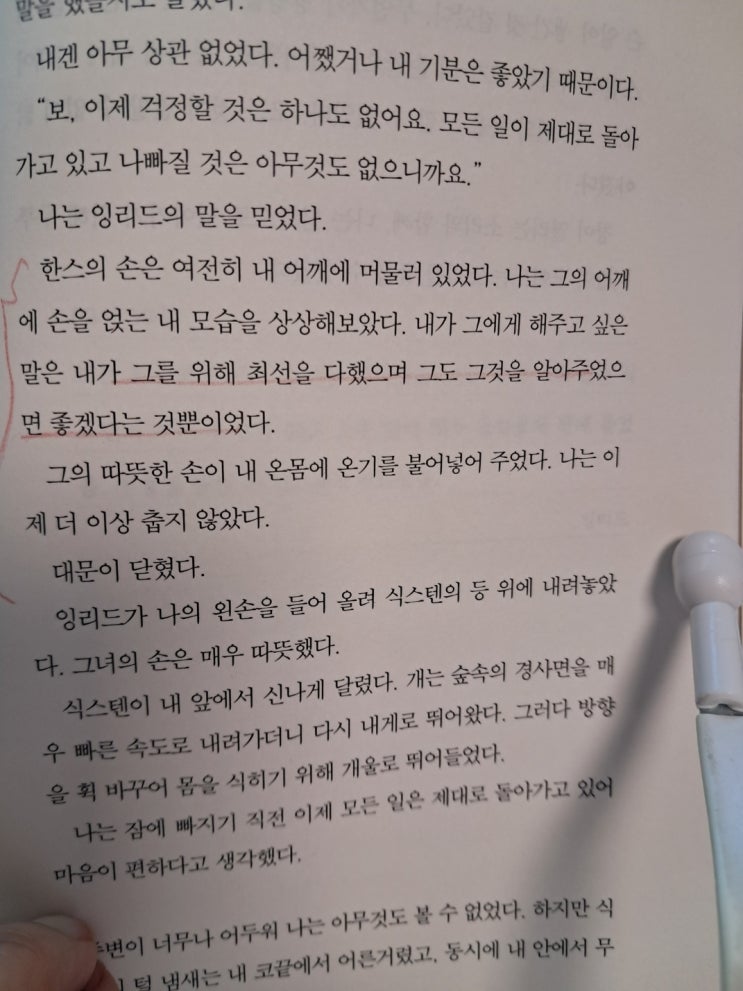 말을 했는지도 몰랐다.
내겐 아무 상관 없었다. 어쨌거나 내 기분은 좋았기 때문이다.
“보, 이제 걱정할 것은 하나도 없어요. 모든 일이 제대로 돌아
가고 있고 나빠질 것은 아무것도 없으니까요.”
나는 잉리드의 말을 믿었다.
한스의 손은 여전히 내 어깨에 머물러 있었다. 나는 그의 어깨
에 손을 얹는 내 모습을 상상해보았다. 내가 그에게 해주고 싶은
말은 내가 그를 위해 최선을 다했으며 그도 그것을 알아주었으
면 좋겠다는 것뿐이었다.
그의 따뜻한 손이 내 온몸에 온기를 불어넣어 주었다. 나는 이
제 더 이상 춥지 않았다.
대문이 닫혔다.
잉리드가 나의 왼손을 들어 올려 식스텐의 등 위에 내려놓았
다. 그녀의 손은 매우 따뜻했다.
식스텐이 내 앞에서 신나게 달렸다. 개는 숲속의 경사면을 매
우 빠른 속도로 내려가더니 다시 내게로 뛰어왔다. 그러다 방향
을 휙 바꾸어 몸을 식히기 위해 개울로 뛰어들었다.
나는 잠에 빠지기 직전 이제 모든 일은 제대로 돌아가고 있어
마음이 편하다고 생각했다.
주변이 너무나 어두워 나는 아무것도 볼 수 없었다. 하지만 식
털 냄새는 내 코끝에서 어른거렸고, 동시에 내 안에서 무